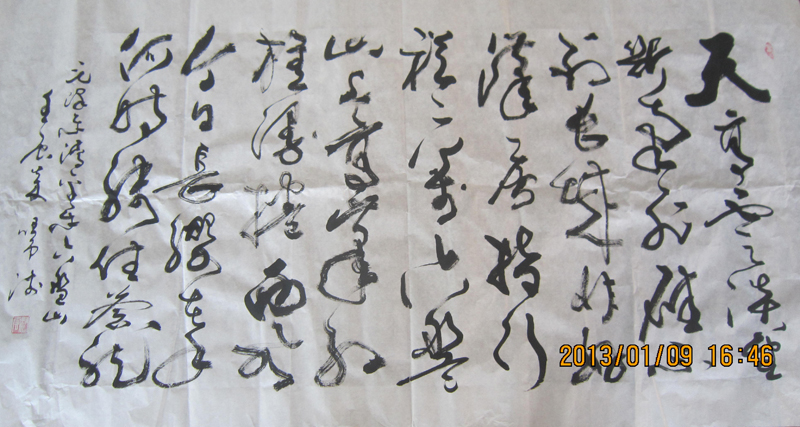 天高云淡望
断南飞雁不
到长城非好
汉屈指行
程二万六盘
山上高峰红
旗漫捲西风
今日長缨在手
何时缚住苍龙
毛泽东清平乐六盘山
2013/01/09 16:46